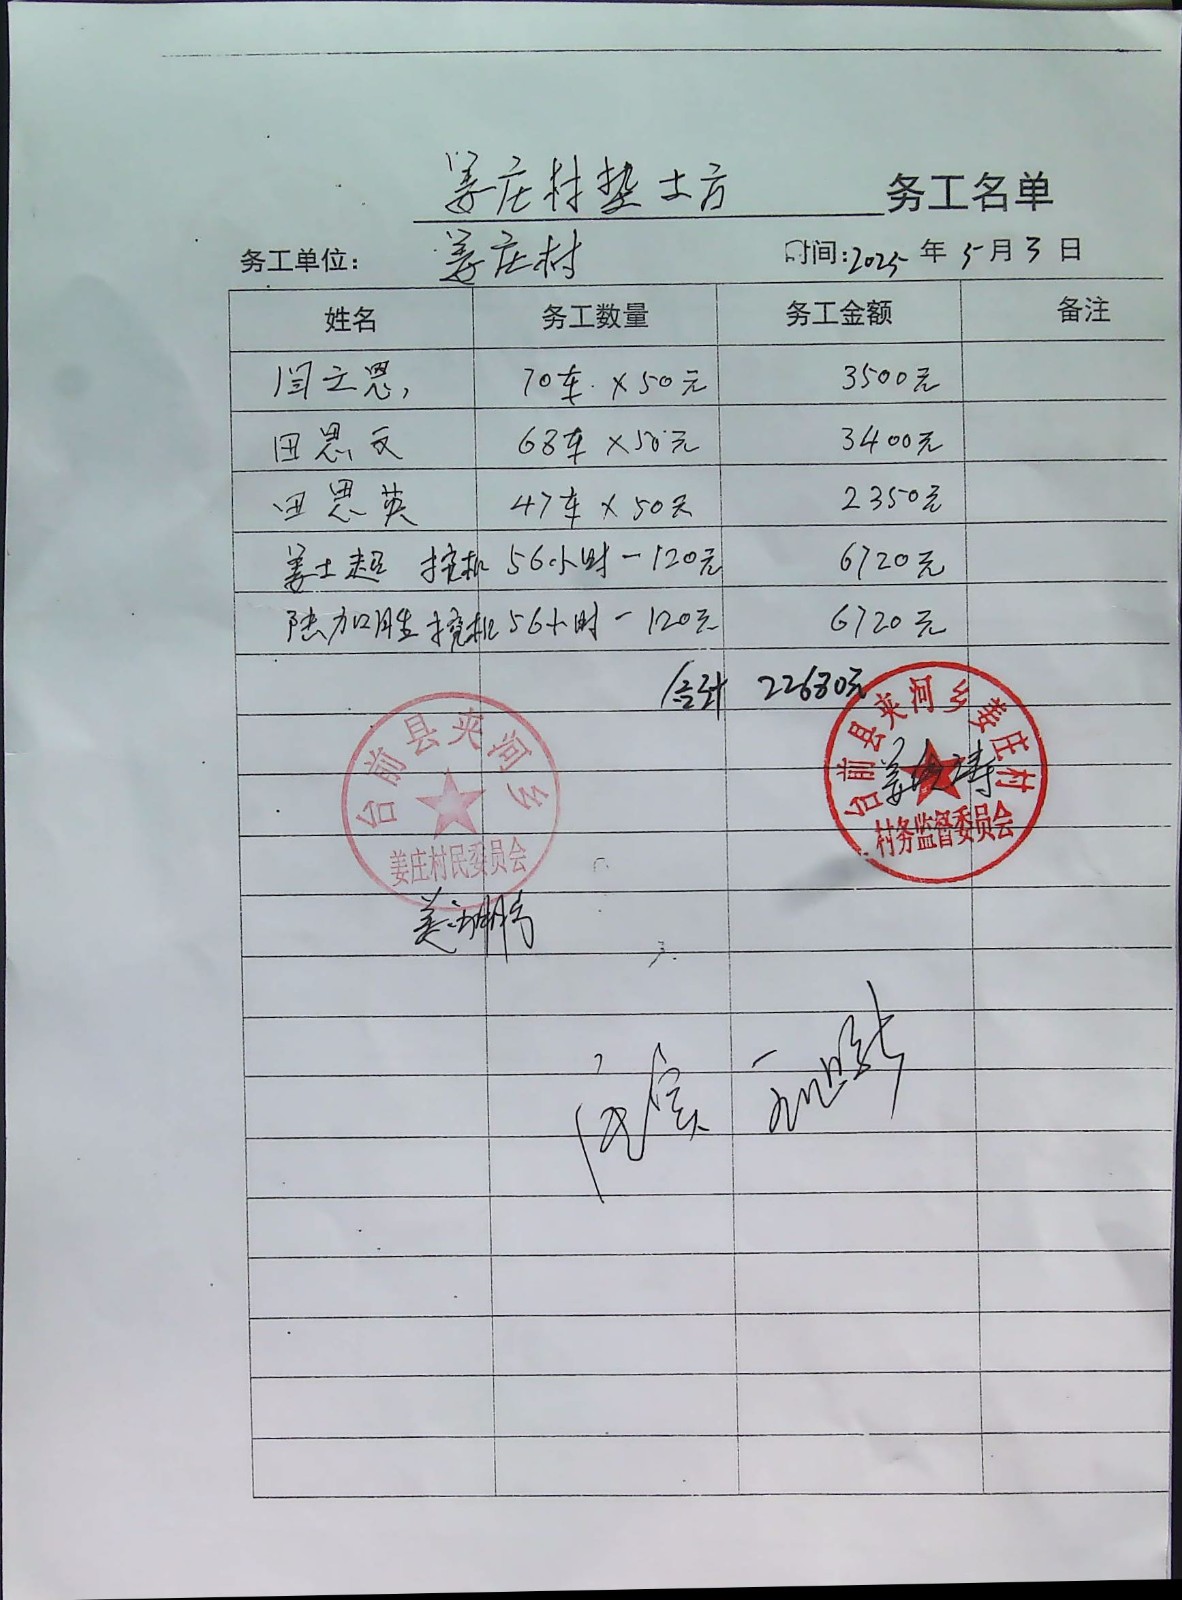 姜庄村垫土方 务工名单
务工单位: 姜庄村 时间:2025年5月3日
姓名 务工数量 务工金额 备注
闫立恩, 70车.×50元 3500元
田思文 68车×50元 3400元
田思英 47车×50元 2350元
姜士超 挖机 56小时-120元 6720元
陆加胜 挖机 56小时-120元 6720元
合计 22680元
台前县夹河乡
姜庄村民委员会
台前县夹河乡姜庄村
村务监督委员会